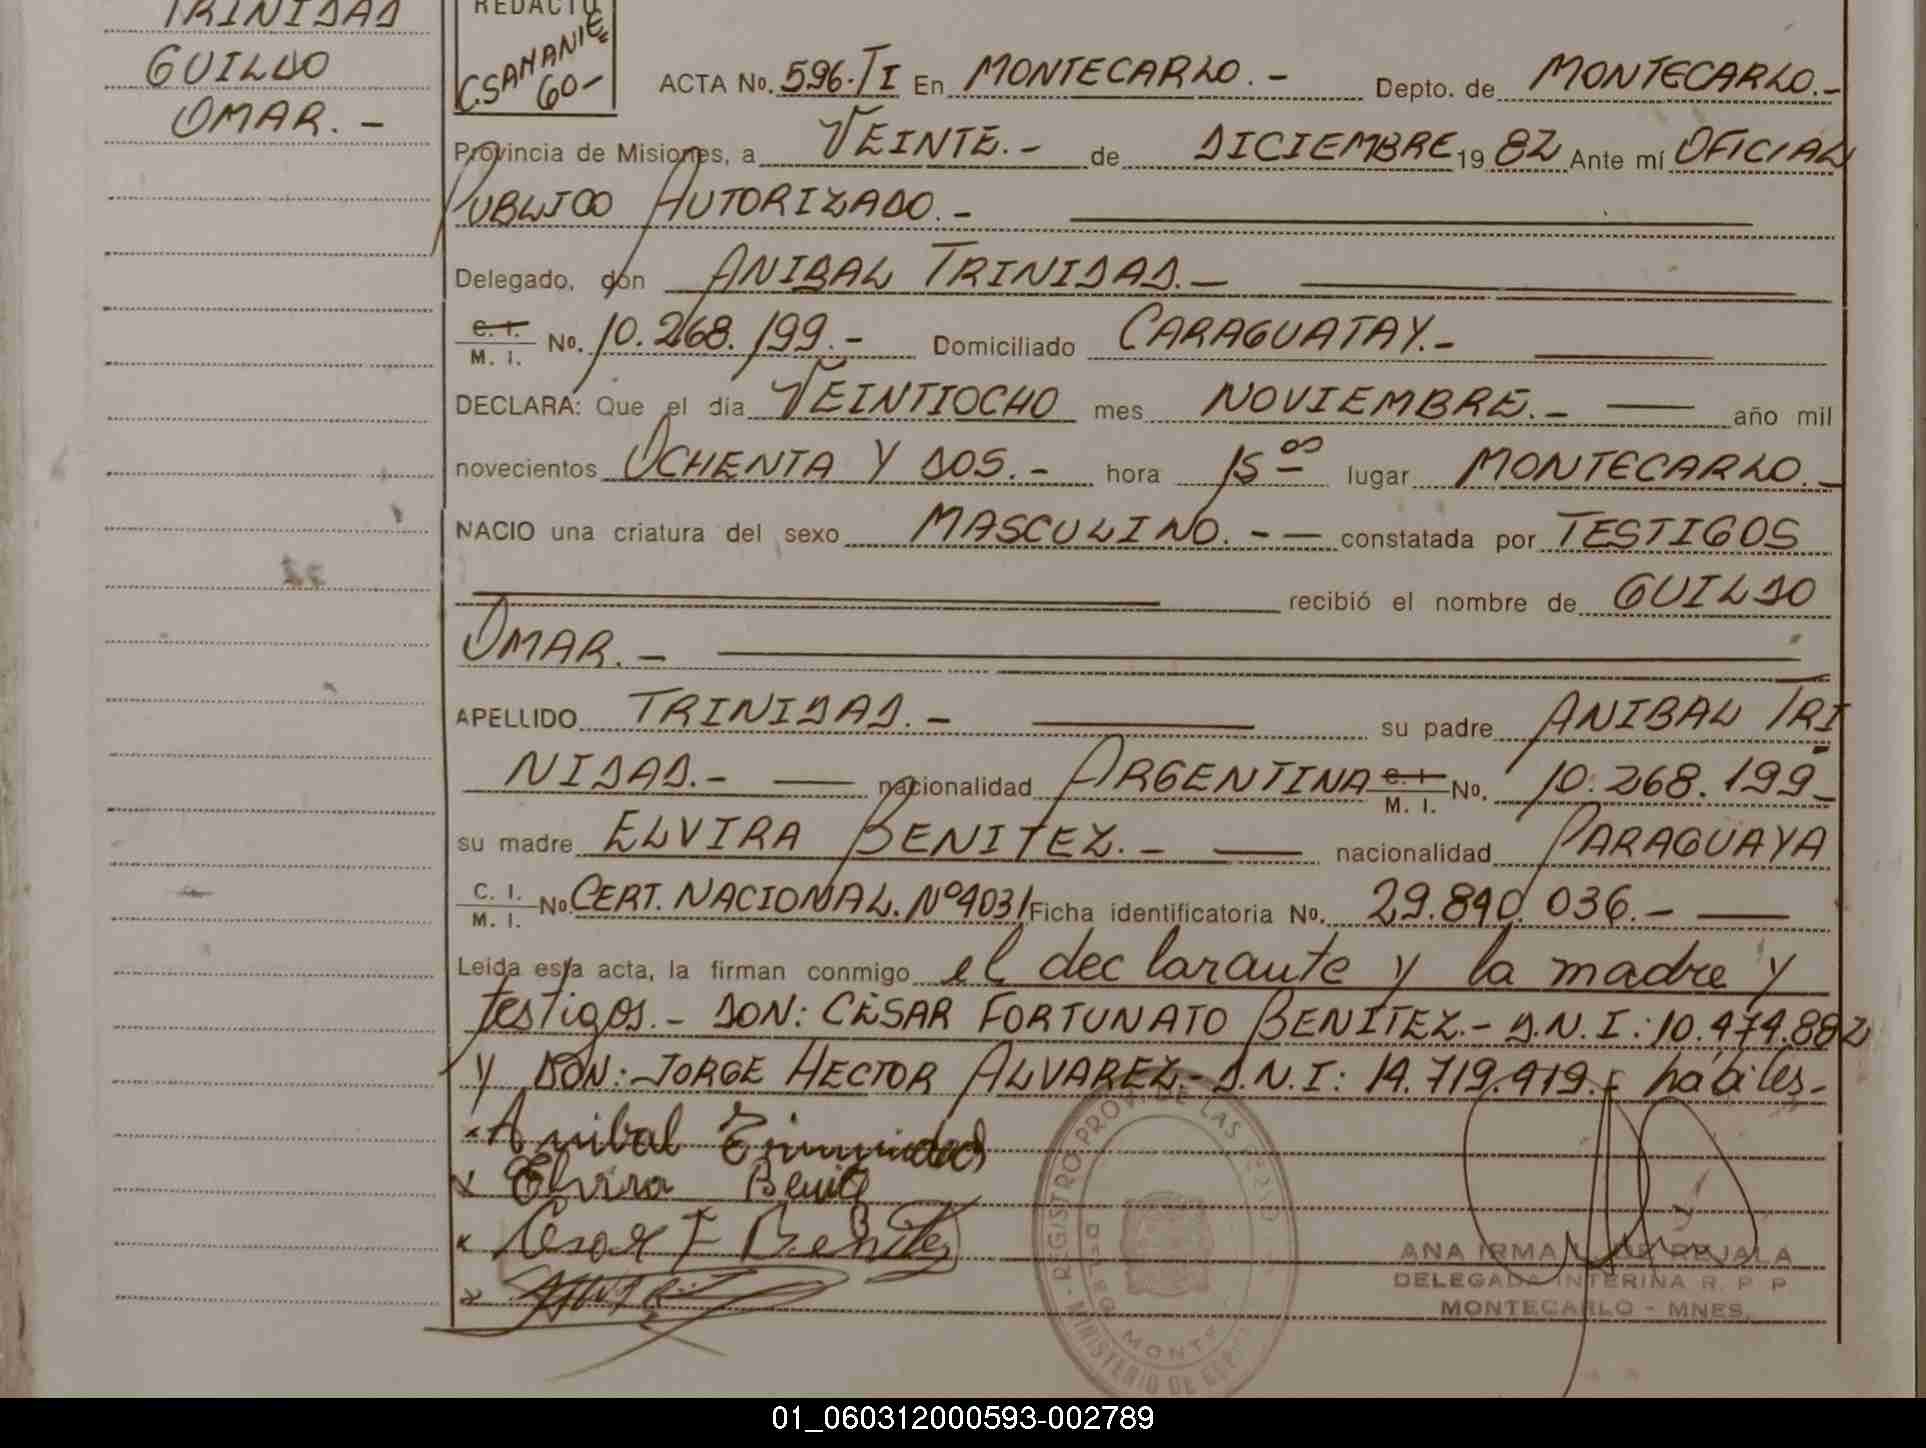 TRINIDAD
GUILDO
OMAR. -
REDACTÓ
60-
ACTA No. 596-TI En MONTECARLO. - Depto. de MONTECARLO.-
Provincia de Misiones, a VEINTE.- de DICIEMBRE 19 82 Ante mí OFICIAL
PUBLICO AUTORIZADO.-
Delegado, don ANIBAL TRINIDAD.-
C. I. / M. I. No. 10.268.199.- Domiciliado CARAGUATAY.-
DECLARA: Que el día VEINTIOCHO mes NOVIEMBRE.- año mil
novecientos OCHENTA Y DOS.- hora 15 00 lugar MONTECARLO.-
NACIO una criatura del sexo MASCULINO.- - constatada por TESTIGOS
recibió el nombre de GUILDO
OMAR.-
APELLIDO TRINIDAD.- su padre ANIBAL TRI
NIDAD.- nacionalidad ARGENTINA C. I. / M. I. No. 10.268.199-
su madre ELVIRA BENITEZ.- nacionalidad PARAGUAYA
C. I. / M. I. No. CERT. NACIONAL. Nº4031 Ficha identificatoria No. 29.840.036.-
Leída esta acta, la firman conmigo el declarante y la madre y
testigos.- DON: CÉSAR FORTUNATO BENITEZ.- D.N.I.: 10.474.882
y DON: JORGE HECTOR ALVAREZ.- D.N.I: 14.719.419.- hábiles.-
Anibal Trinidad
Elvira Benite
Cesar F Benitez
REGISTRO PROV. DE LAS
MINISTERIO DE
ANA IRMA
DELEGADA INTERINA R. P. P.
MONTECARLO - MNES.
01_060312000593-002789